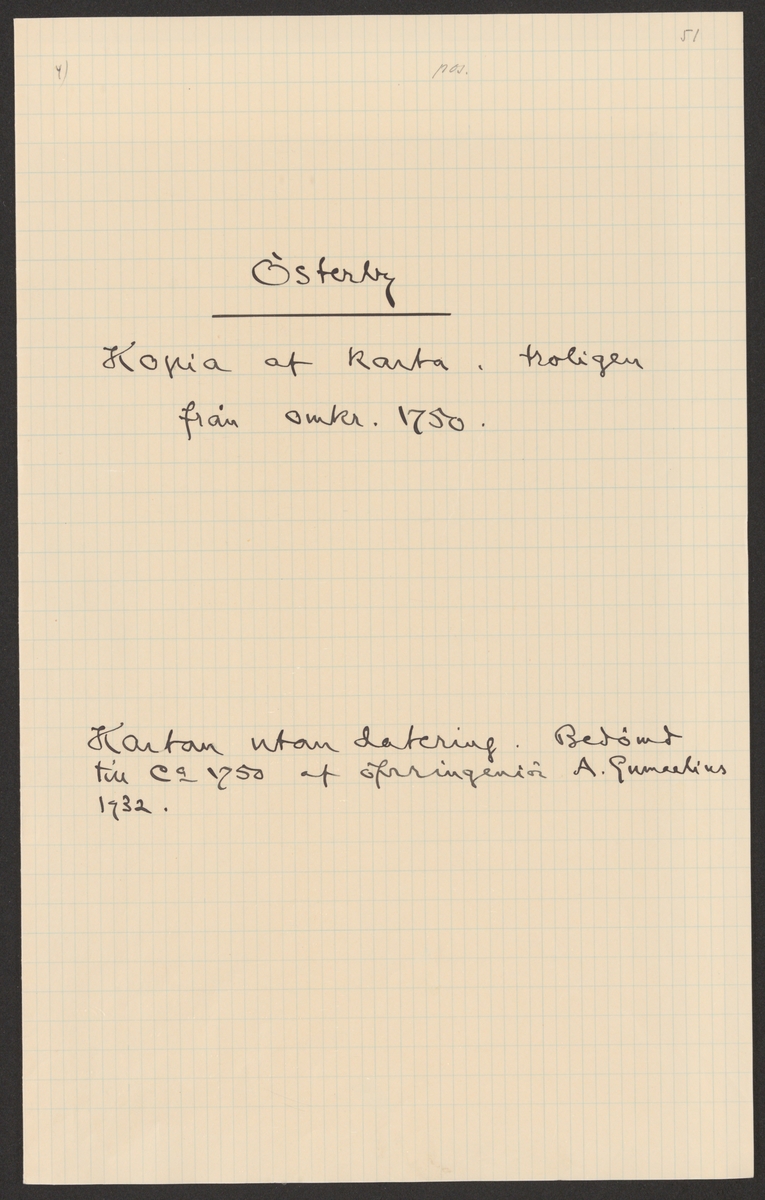 51
4)
pos.
Österby
Kopia af karta. troligen
från omkr. 1750.
Kartan utan datering. Bedömd
till Ca 1750 af öfveringeniör A. Gumaelius
1932.